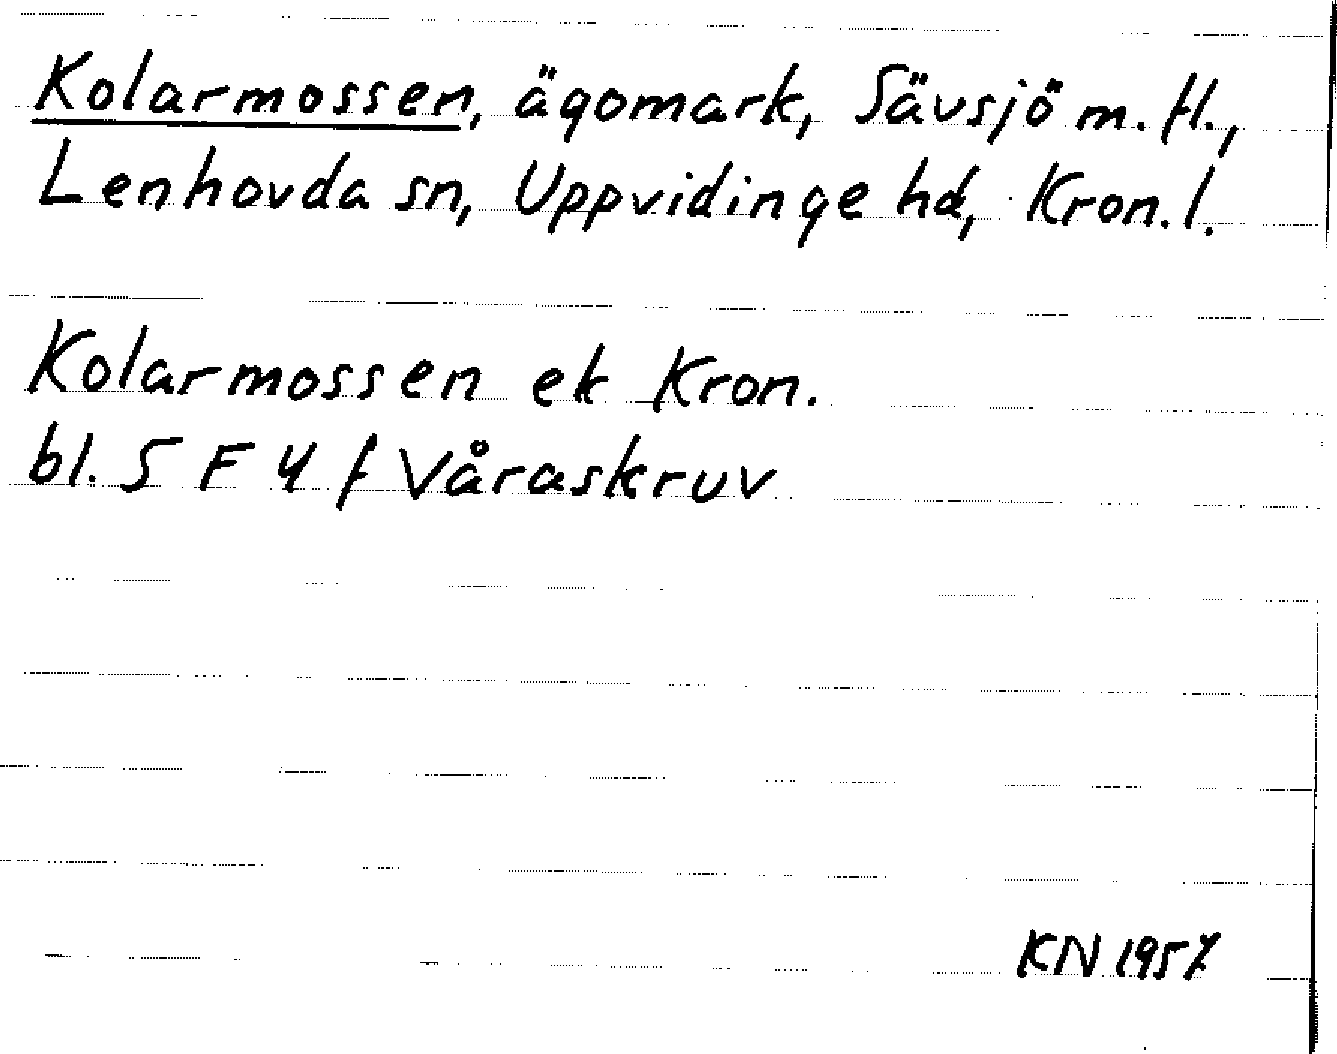 Kolarmossen, ägomark, Sävsjö m. fl.,
Lenhovda sn, Uppvidinge hd, Kron. l.
Kolarmossen ek Kron.
bl. 5 F 4 f Våraskruv
KN 1957